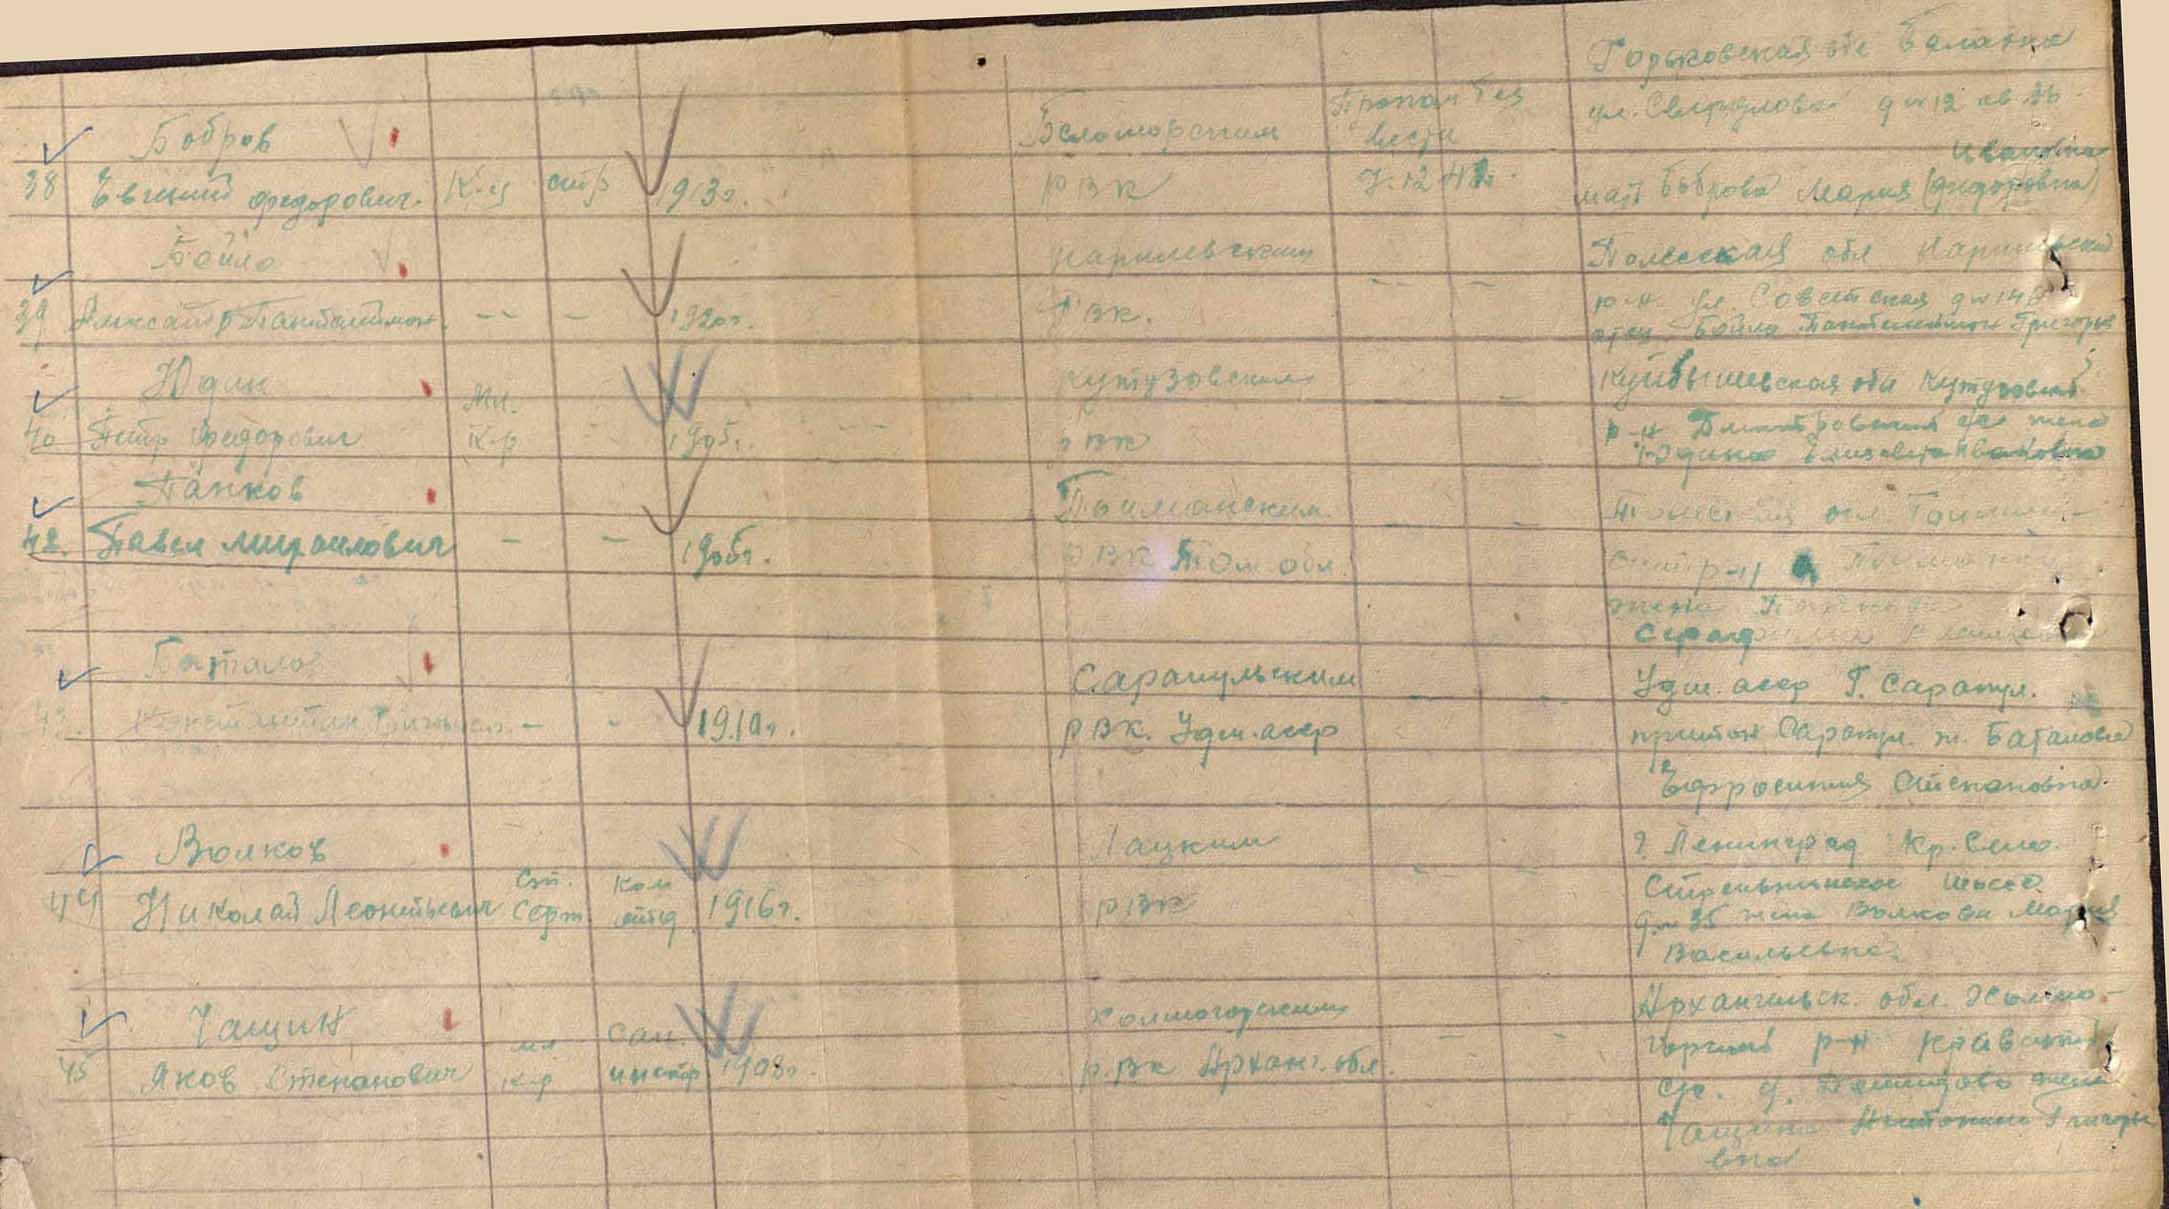 Горьковская обл Балахна
Бобров
Беломорским
Пропал без
вести
ул. Свердлова д № 12 кв. 26
Ивановна
38 Евгений Федорович К-ц стр 1913г. РВК 7.12.41г. мать Боброва Мария (Федоровна)
Бойло
Наровлянским
Полесская обл
39 Александр Пантелеймон. -- - 1920г. РВК. р-н ул. Советская д № 148
отец Бойло Пантелеймон Григорьев
Юдин
Мл.
Кутузовским
Куйбышевская обл Кутузовский
40 Петр Федорович К-р 1905г. РВК р-н Дмитровский с/с жена
Юдина Елизавета Ивановна
Панков
42. Павел Михайлович - - 1905г. РВК Том обл.
р-н
жена
Баталов
Сарапульским
Удм. асср г. Сарапул.
43. Константин - - 1910г. РВК. Удм. асср пристань Сарапул. ж. Баталова
Ефросиния Степановна.
Волков
Ст.
Ком
г. Ленинград Кр. Село.
Стрельнинское шоссе
44 Николай Леонтьевич Серж. отд. 1916г. РВК д. № 35 жена Волкова Мария
Васильевна.
Чащин
мл
Сан.
Холмогорским
Архангельск. обл. Холмо-
горский р-н
45 Яков Степанович К-р инстр 1908г. р.ВК Арханг. обл.
с/с. д. жена
Чащина Антонина Григорь
вна